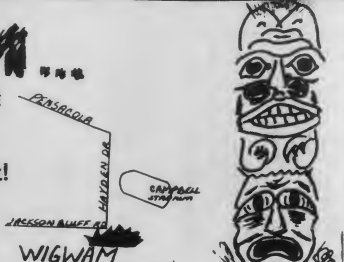 PENSACOLA
HAYDEN DR
!
CAMPBELL
STADIUM
JACKSON BLUFF RD
WIGWAM